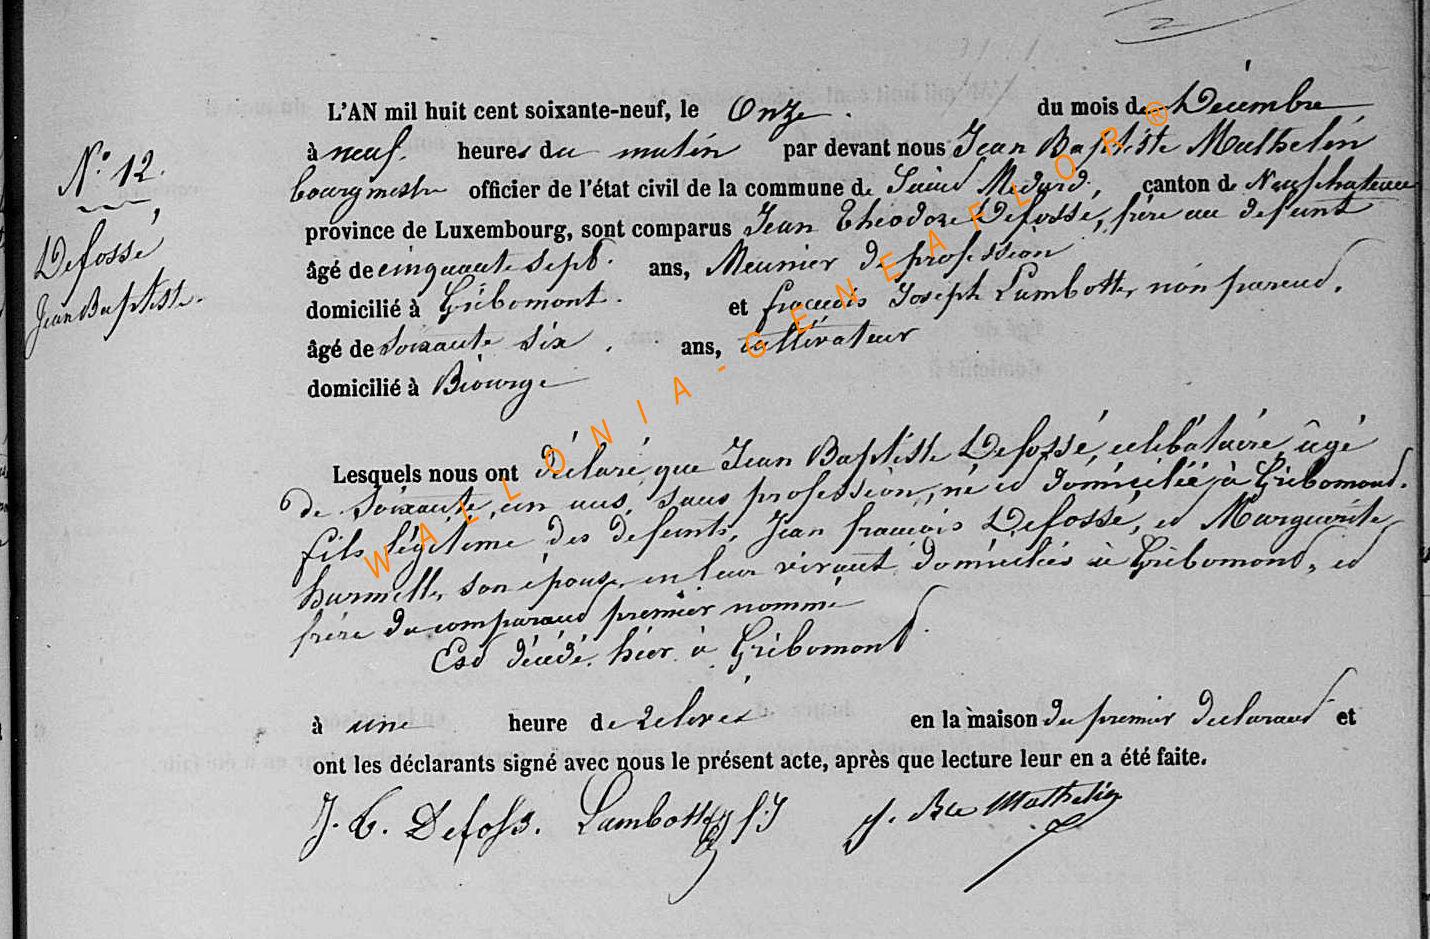 N° 12.
Defossé
Jean Baptiste.
L'AN mil huit cent soixante-neuf, le Onze. du mois de Décembre
à neuf. heures du matin par devant nous Jean Baptiste Mathelin
bourgmestre officier de l'état civil de la commune de Saint Médard, canton de Neufchateau
province de Luxembourg, sont comparus Jean Théodore Defossé, frère au défunt
âgé de cinquante sept. ans, Meunier de profession
domicilié à Gribomont. et françois Joseph Lambotte, non parend.
âgé de soixante six. ans, cultivateur
domicilié à Biourge
Lesquels nous ont déclaré que Jean Baptiste Defossé, célibataire, âgé
de soixante, un ans, sans profession, né et domicilié à Gribomond.
fils légitime des défunts, Jean françois Defossé, et Marguerite
son épouse, en leur vivant domiciliés à Gribomond, et
frère du comparand premier nommé
Est décédé. hier à Gribomont.
à une heure de relevée en la maison du premier déclarand et
ont les déclarants signé avec nous le présent acte, après que lecture leur en a été faite.
J. T. Defossé. Lambotte f. J J. Bte Mathelin
WALLONIA-GENEAFLOR®